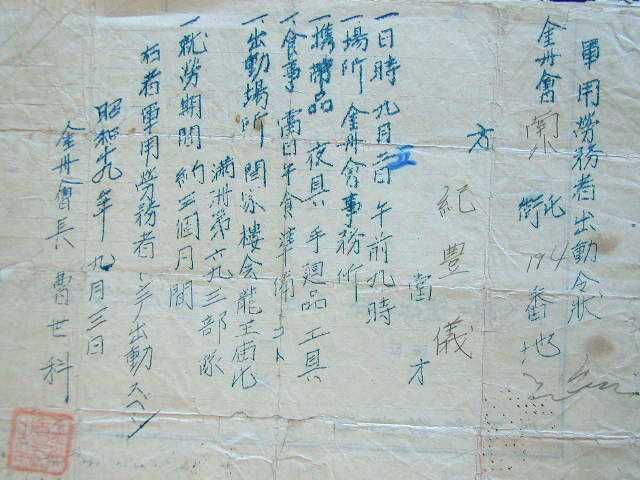 軍用勞務者出動令狀
金州會 南 街 屯 194 番地
方 紀豊儀 當 才
一日時 九月五日 午前九時
一場所 金州會事務所
一携帶品 夜具 手廻品 工具
一食事 當日午食準備ノコト
一出動場所 閻家樓会龍王庙屯
滿洲第一六九三部隊
一就勞期間 約三個月間
右者軍用勞務者トシテ出動スベシ
昭和十九年九月三日
金州會長 曹世科